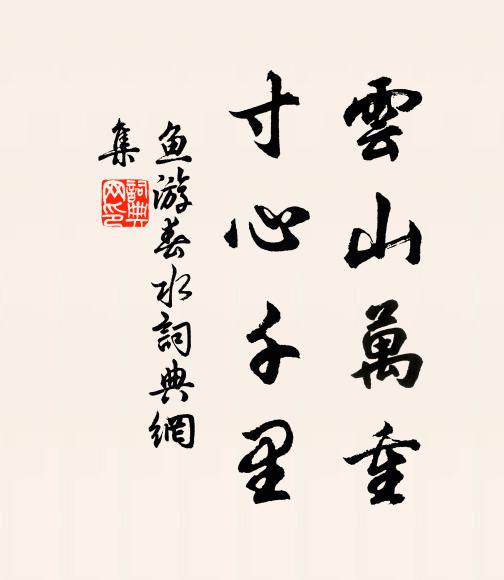 雲山萬重
寸心千里
魚游春水詞典網
集
詞典网印